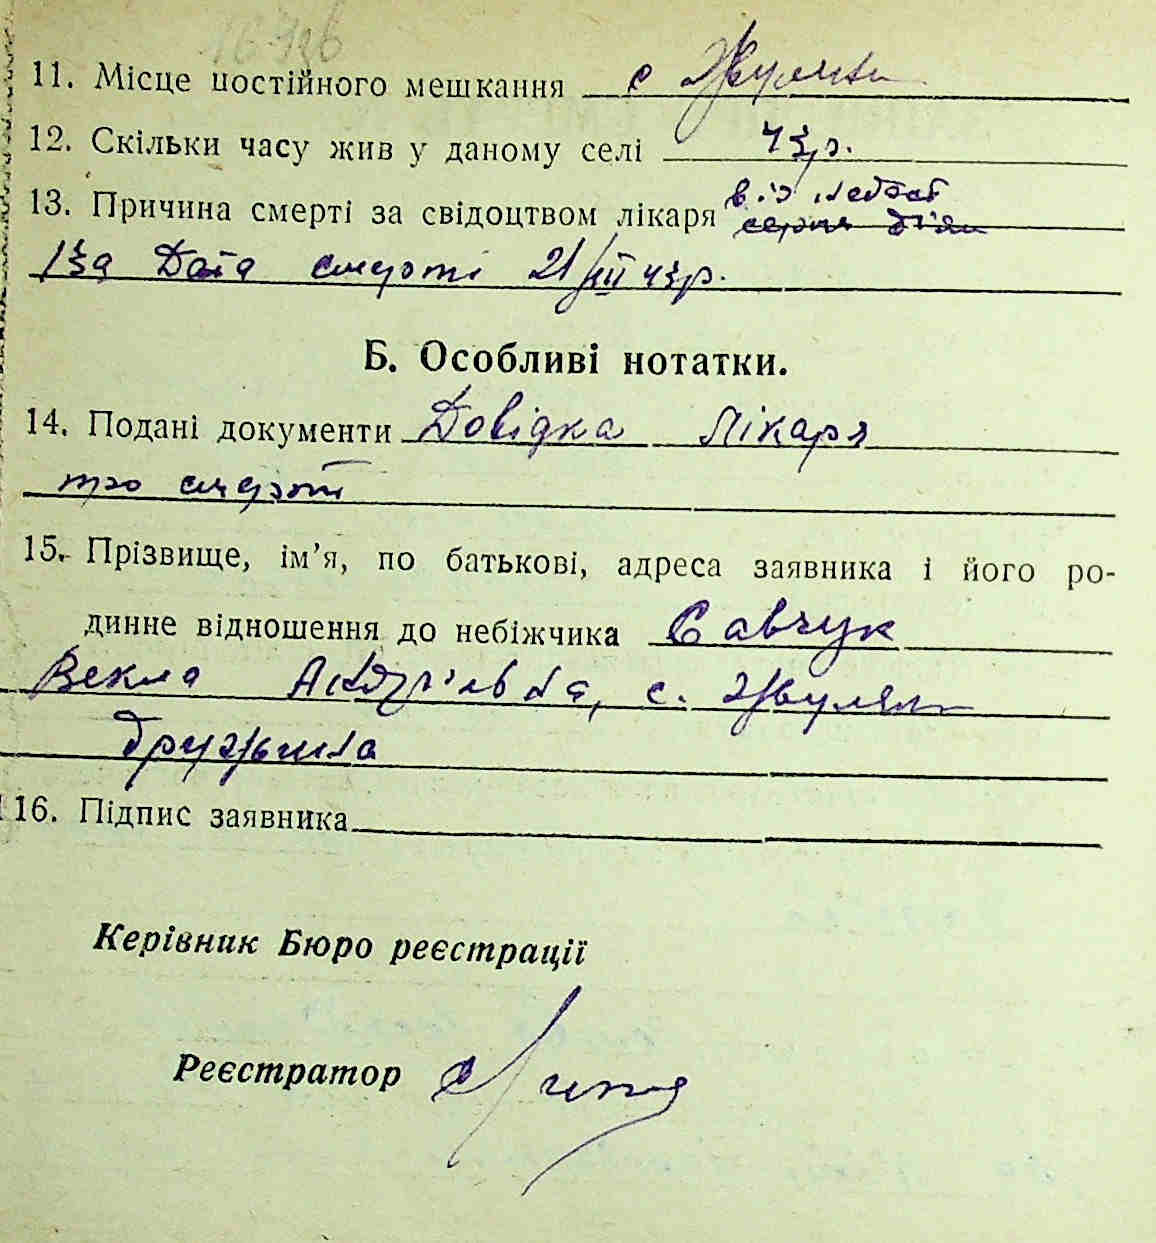 16796
11. Місце постійного мешкання с Жуляни
12. Скільки часу жив у даному селі 43 р.
13. Причина смерті за свідоцтвом лікаря від
Дата смерті 21/XII 43 р.
Б. Особливі нотатки.
14. Подані документи Довідка Лікаря
про смерть
15. Прізвище, ім’я, по батькові, адреса заявника і його ро-
динне відношення до небіжчика Савчук
Векла Андріївна, с. Жуляни
дружина
16. Підпис заявника
Керівник Бюро реєстрації
Реєстратор